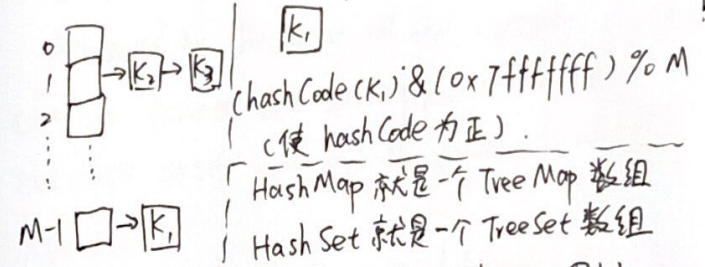 0
1 → K2 → K3
2
M-1 → K1
K1
(hashCode(K1) & (0x7fffffff) % M
(使 hashCode 为正).
HashMap 就是一个 TreeMap 数组
HashSet 就是一个 TreeSet 数组